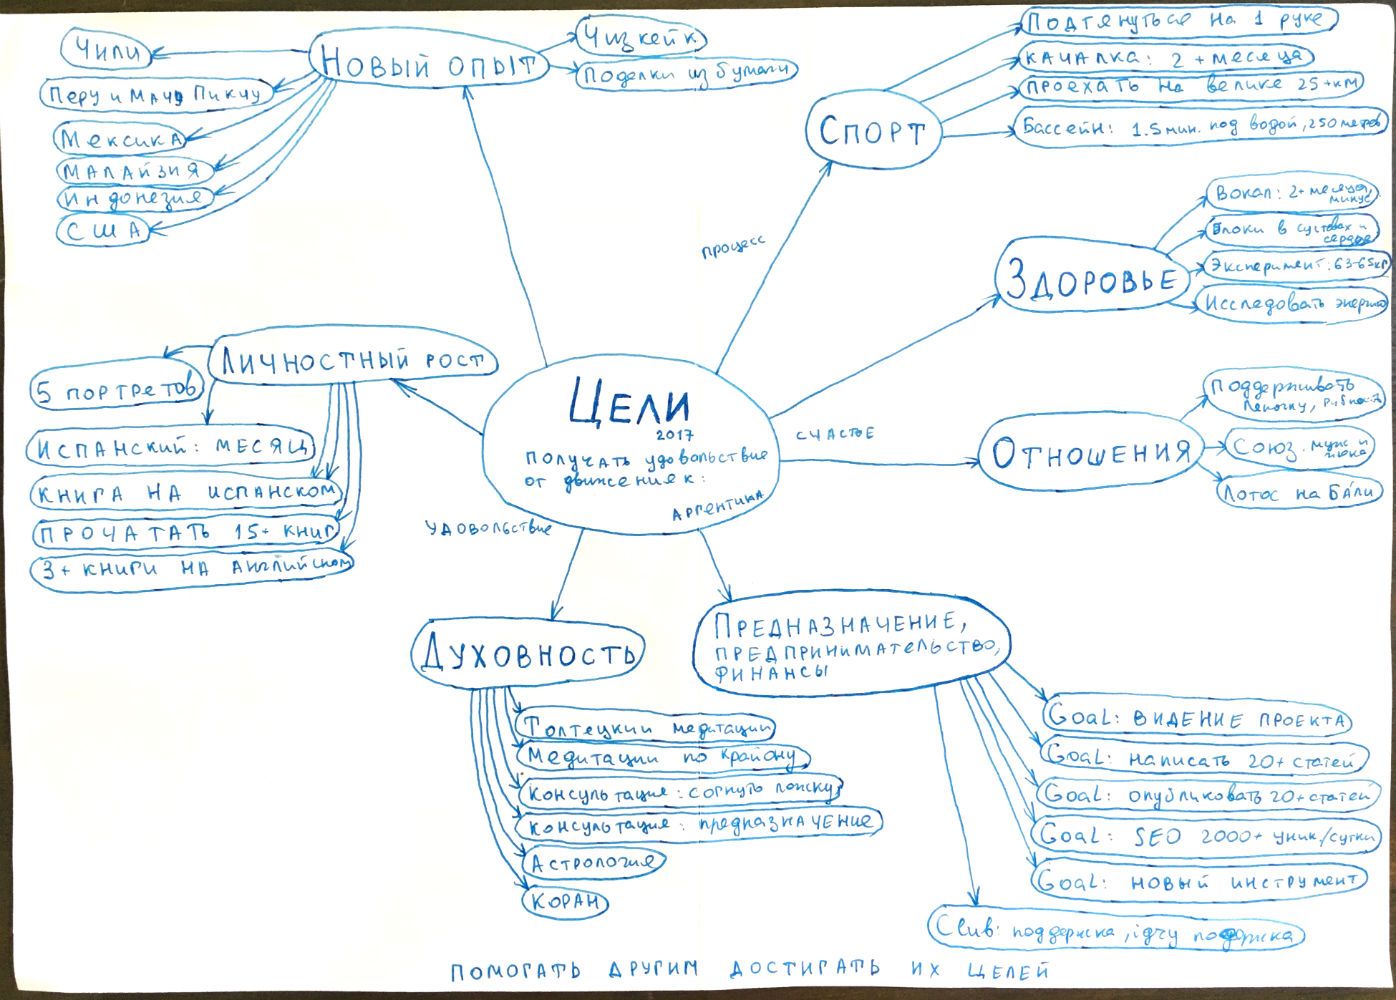 Новый опыт
Чили
Перу и Мачу Пикчу
Мексика
Малайзия
Индонезия
США
Чизкейк
Поделки из бумаги
Спорт
Подтянуться на 1 руке
Качалка: 2+ месяца
Проехать на велике 25+км
Бассейн: 1.5 мин. под водой, 250 метров
процесс
Здоровье
Вокал: 2+ месяца,
минус
Блоки в суставах и
сердце
Эксперимент: 63-65кг
Исследовать энергию
Цели
2017
получать удовольствие
от движения к:
Аргентина
счастье
удовольствие
Отношения
Поддерживать
Леночку,
Союз. муж и
жена
Лотос на Бали
Личностный рост
5 портретов
Испанский: месяц
Книга на испанском
Прочатать 15+ книг
3+ книги на английском
Духовность
Толтецкии медитации
Медитации по Крайону
Консультация: согнуто ложку
Консультация: предназначение
Астрология
Коран
Предназначение,
предпринимательство,
финансы
Goal: видение проекта
Goal: написать 20+ статей
Goal: опубликовать 20+ статей
Goal: SEO 2000+ уник/сутки
Goal: новый инструмент
поддержка, поддержка
помогать другим достигать их целей